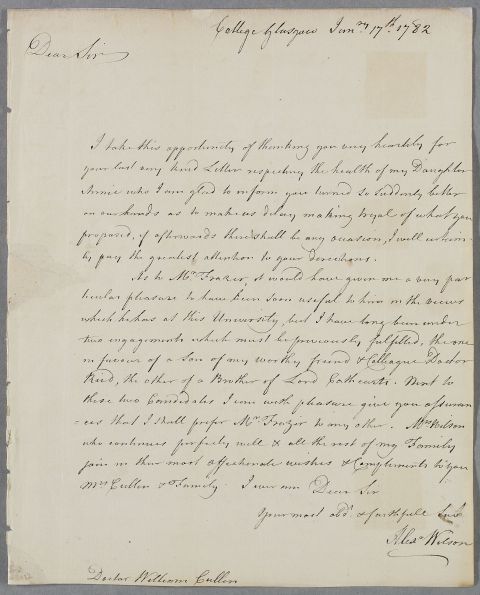 College Glasgow Janry 17th 1782
Dear Sir
I take this opportunity of thanking you very heartily for
your last very kind Letter respecting the health of my Daughter
Annie who I am glad to inform you turned so suddenly better
on our hands as to make us delay making tryal of what you
proposed, if afterwards there shall be any occasion, I will certain-
ly pay the greatest attention to your directions.
As to Mr Frazer, it would have given me a very par
ticular pleasure to have been soon useful to him in the views
which he has at this University, but I have long been under
two engagements which must be previously fulfilled, the one
in favour of a Son of my worthy friend & Colleague Doctor
Reid, the other of a Brother of Lord Cathcarts. Next to
these two Candidates I can with pleasure give you assuran
=ces that I shall prefer Mr Frazer to any other. Mrs Wilson
who continues perfectly well & all the rest of my Family
join in their most affectionate wishes & Complements to you
Mrs Cullen & Family. I ever am Dear Sir
Your most obdt & faithfull Sert
Alexr Wilson
Doctor William Cullen